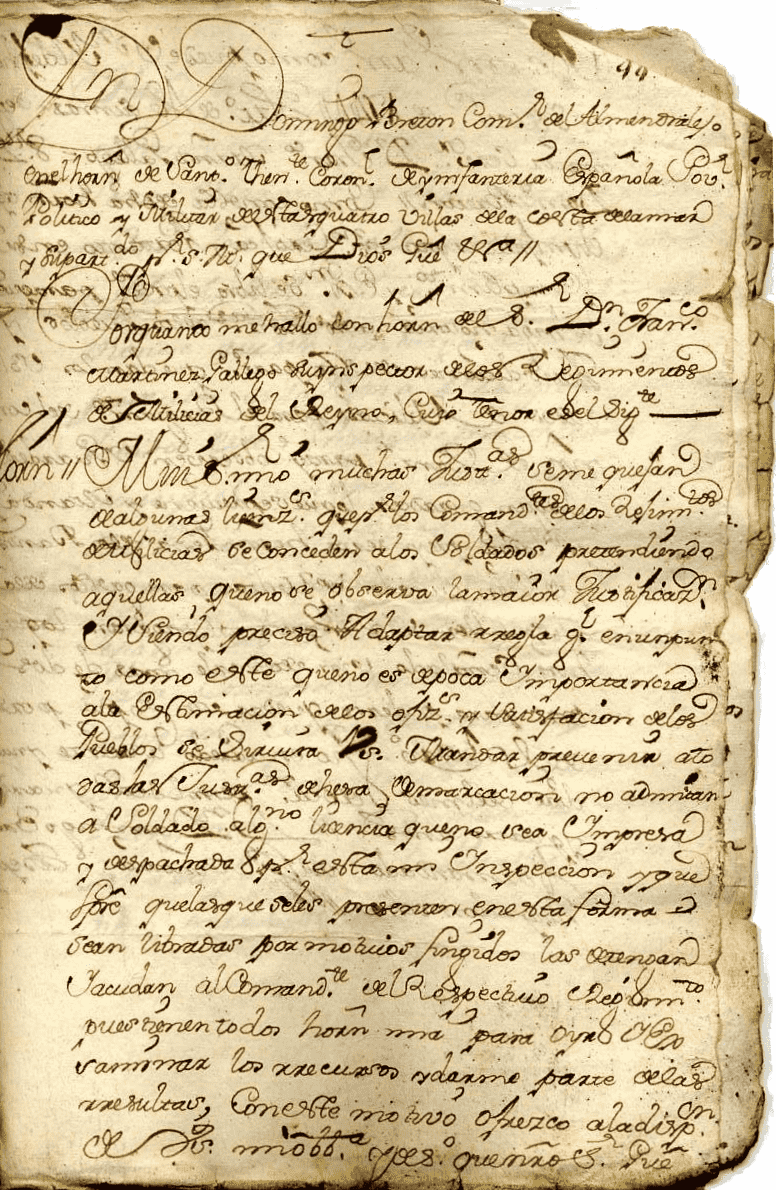 99
Dn Domingo Breton Comr del Almendralejo
enel horñ de Santo. Thente Coronl. de ymfanteria Española Govr.
Politico y Militar destas quatro villas dela costa delamar
y supartdo pr. S. M. que Dios Gue &ra //
Porquanto mehallo con horñ del Sr. Dn. Franco.
Martinez Gallego Ynspector delos Regimientos
de Milicias del Reyno, Cuio Tenor esel Sigte
horñ // Mui Sr mio muchas Justas. seme quejan
dealgunas lizenzs. quepr los Comandtes delos Regimtos
demilicias se conceden alos Soldados pretendiendo
aquellas queno se observa lamaior Justificazn.
Y Siendo preciso Adaptar rregla gl. enunpun
to como este queno es depoca Importancia
ala Estimacion delos ofizs. y Satisfacion delos
Pueblos se servira VS. Mandar prevenir ato
daslas Justas. dehesa Demarcacion no admitan
a Soldado algno licencia queno sea Impresa
y despachada pr. esta mi Inspeccion yque
spre quelasque seles presenten enesta forma
sean libradas por motivos fingidos las detengan
Yacudan al Comandte. del Respectivo Regimto.
pues tienen todos horñ mia para oyrs YEx
saminar los rrecursos ydarme parte delas
rresultas, Coneste motivo ofrezco aladispon.
de VS. mi obba. ydeso. quenro Sr. Gue